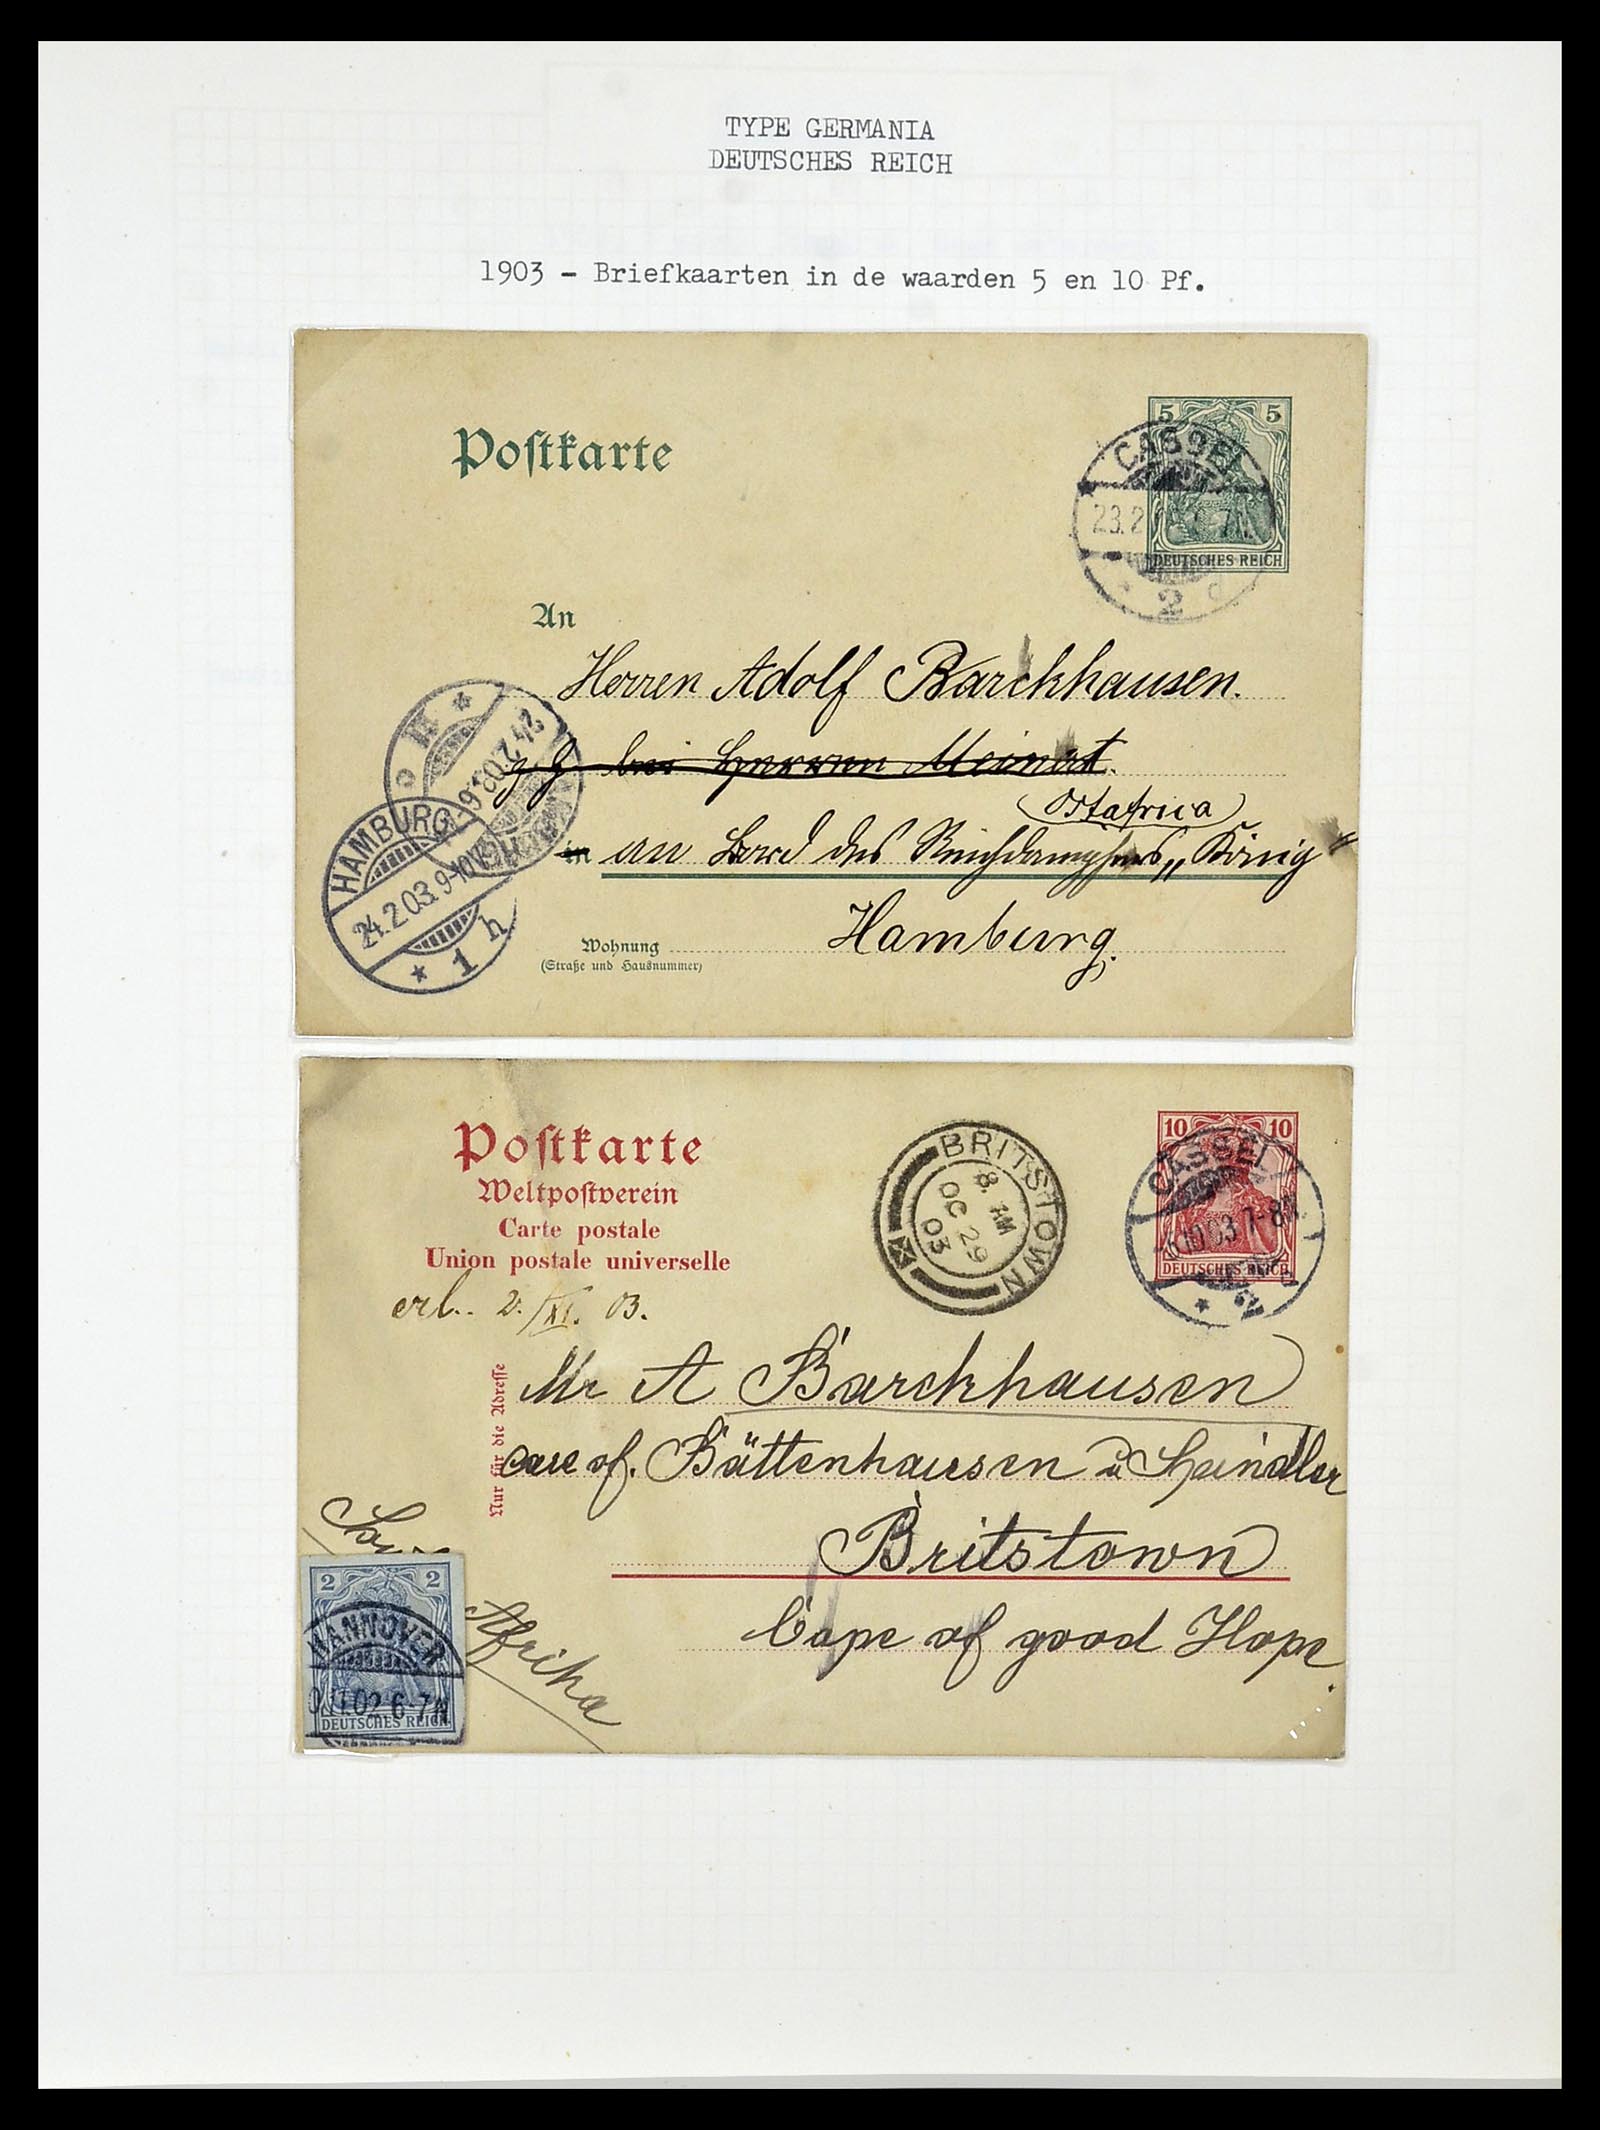 TYPE GERMANIA
DEUTSCHES REICH
1903 - Briefkaarten in de waarden 5 en 10 Pf.
Postkarte
5 5
DEUTSCHES REICH
CASSEL
23.2
2 d
An
Herren Adolf Barckhausen.
z. Z. bei Herren Meinert.
Ostafrica
in an Bord des Reichdampfers „König"
Hamburg.
Wohnung
(Straße und Hausnummer)
24.2.03.
HAMBURG
24.2.03. 9-10V.
* 1 h
Postkarte
Weltpostverein
Carte postale
Union postale universelle
10 10
DEUTSCHES REICH
CASSEL
-5.10.03 7-8N.
* 2
BRITSTOWN
8. AM
OC 29
03
erl. 2./XI. 03.
Nur für die Adresse
Mr A Barckhausen
care of. Büttenhausen & Heindler
Britstown
Cape of good Hope.
Afrika
2 2
HANNOVER
.11.02 6-7N
DEUTSCHES REICH